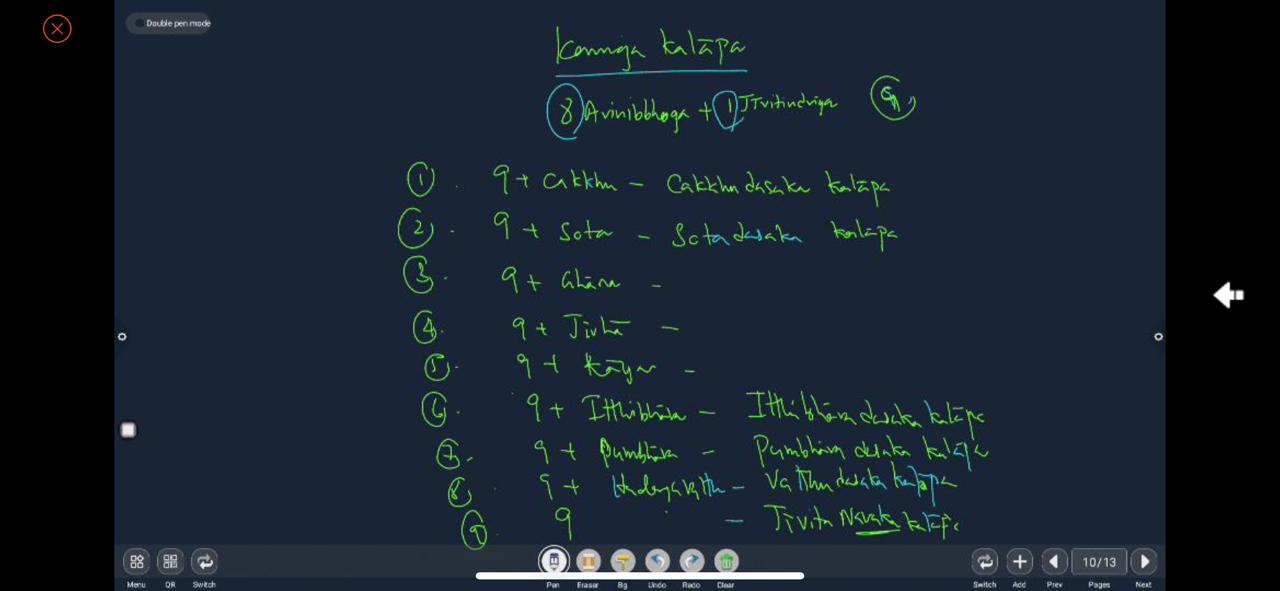 Double pen mode
Kammaja kalāpa
8 Avinibbhoga + 1 Jīvitindriya 9
1. 9 + Cakkhu – Cakkhudasaka kalāpa
2. 9 + Sota – Sotadasaka kalāpa
3. 9 + Ghāna –
4. 9 + Jivhā –
5. 9 + Kāya –
6. 9 + Itthibhāva – Itthibhāva dasaka kalāpa
7. 9 + Pumbhāva – Pumbhāva dasaka kalāpa
8. 9 + Hadayavatthu – Vatthudasaka kalāpa
9. 9 – Jīvita Navaka kalāpa
10/13
Menu QR Switch Pen Eraser Bg Undo Redo Clear Switch Add Prev Pages Next